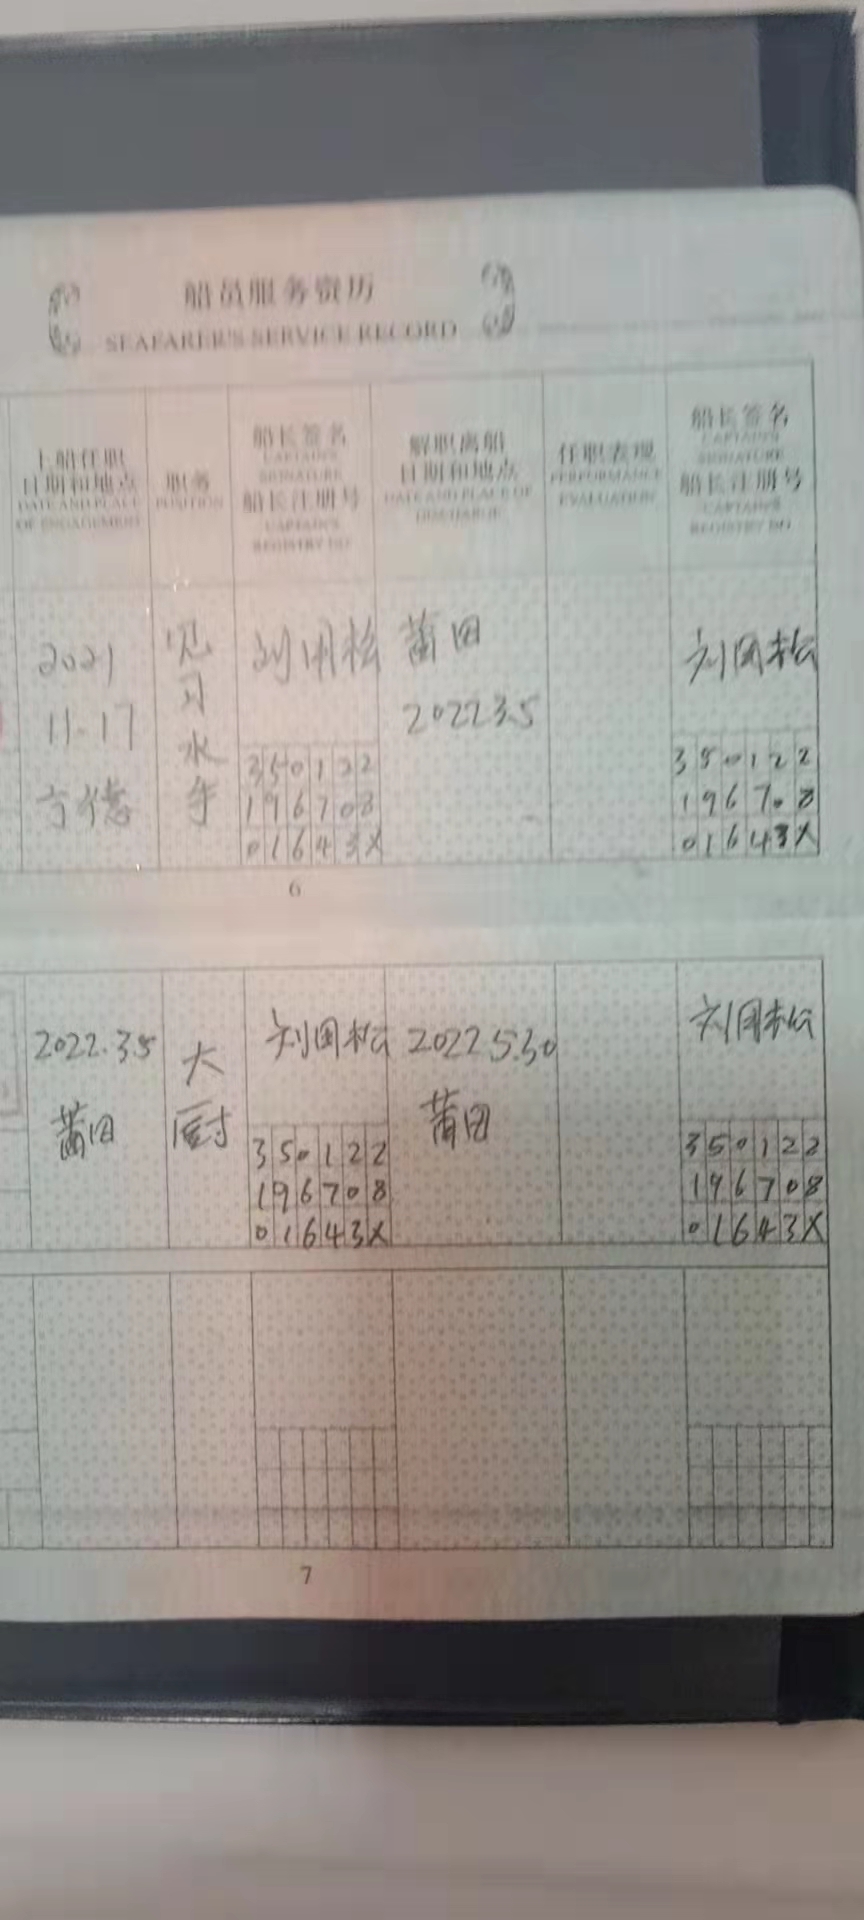 船员服务资历
SEAFARER'S SERVICE RECORD
上船任职
日期和地点
DATE AND PLACE
OF ENGAGEMENT
职务
POSITION
船长签名
CAPTAIN'S
SIGNATURE
船长注册号
CAPTAIN'S
REGISTRY NO
解职离船
日期和地点
DATE AND PLACE OF
DISCHARGE
任职表现
PERFORMANCE
EVALUATION
船长签名
CAPTAIN'S
SIGNATURE
船长注册号
CAPTAIN'S
REGISTRY NO
2021
11-17
见习水手
350122
196708
01643X
莆田
2022.3.5
350122
196708
01643X
6
2022.3.5
莆田
大厨
350122
196708
01643X
2022.5.30
莆田
350122
196708
01643X
7